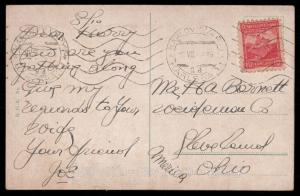 5/10
Dear Harry
How are you
getting along
Give my
regards to your
wife
Your friend
Joe
Mr H A Barnett
Cleveland
Ohio
America